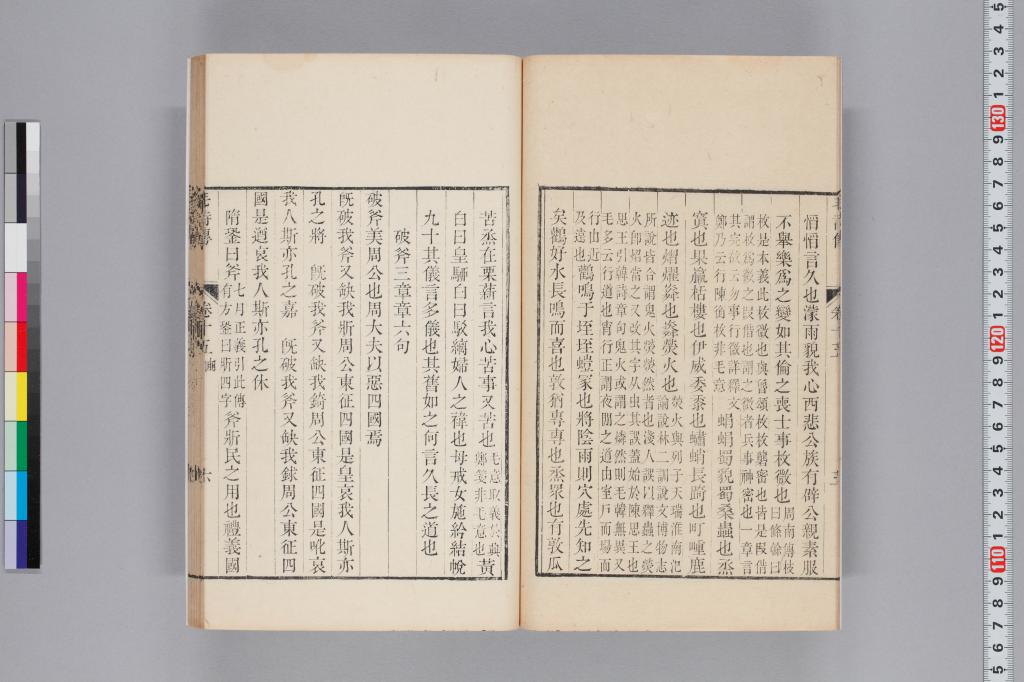 慆慆言久也濛雨貌我心西悲公族有辟公親素服
不舉樂爲之變如其倫之喪士事枚微也周南傳枝
曰條榦曰
枚是本義此枚微也與魯頌枚枚礱密也皆是叚借
謂枚爲微之叚借也謂之微者兵事神密也一章言
其完故云勿事行微詳釋文
鄭乃云行陳銜枚非毛意
蜎蜎蠋貌蠋桑蟲也烝
窴也果臝栝樓也伊威委黍也蠨蛸長踦也町畽鹿
迹也熠燿燐也燐熒火也熒火與列子天瑞淮南氾
論說林二訓說文博物志
所說皆合謂鬼火熒熒然者也淺人誤以釋蟲之熒
火卽炤當之又改其字从虫其誤蓋始於陳思王也
思王引韓詩章句鬼火或謂之燐然則毛韓無異又
毛多云行道也宵行正謂夜閒之道由室戶而場而
行山近
及遠也
鸛鳴于垤垤螘冢也將陰雨則穴處先知之
矣鸛好水長鳴而喜也敦猶專專也烝眾也有敦瓜
苦烝在栗薪言我心苦事又苦也毛意取義於興
鄭箋非毛意也
黃
白曰皇騂白曰駁縭婦人之褘也母戒女施衿結帨
九十其儀言多儀也其舊如之何言久長之道也
破斧三章章六句
破斧美周公也周大夫以惡四國焉
旣破我斧又缺我斨周公東征四國是皇哀我人斯亦
孔之將 旣破我斧又缺我錡周公東征四國是吪哀
我人斯亦孔之嘉 旣破我斧又缺我銶周公東征四
國是遒哀我人斯亦孔之休
隋銎曰斧七月正義引此傳
有方銎曰斨四字
斧斨民之用也禮義國
卷十五 豳
六